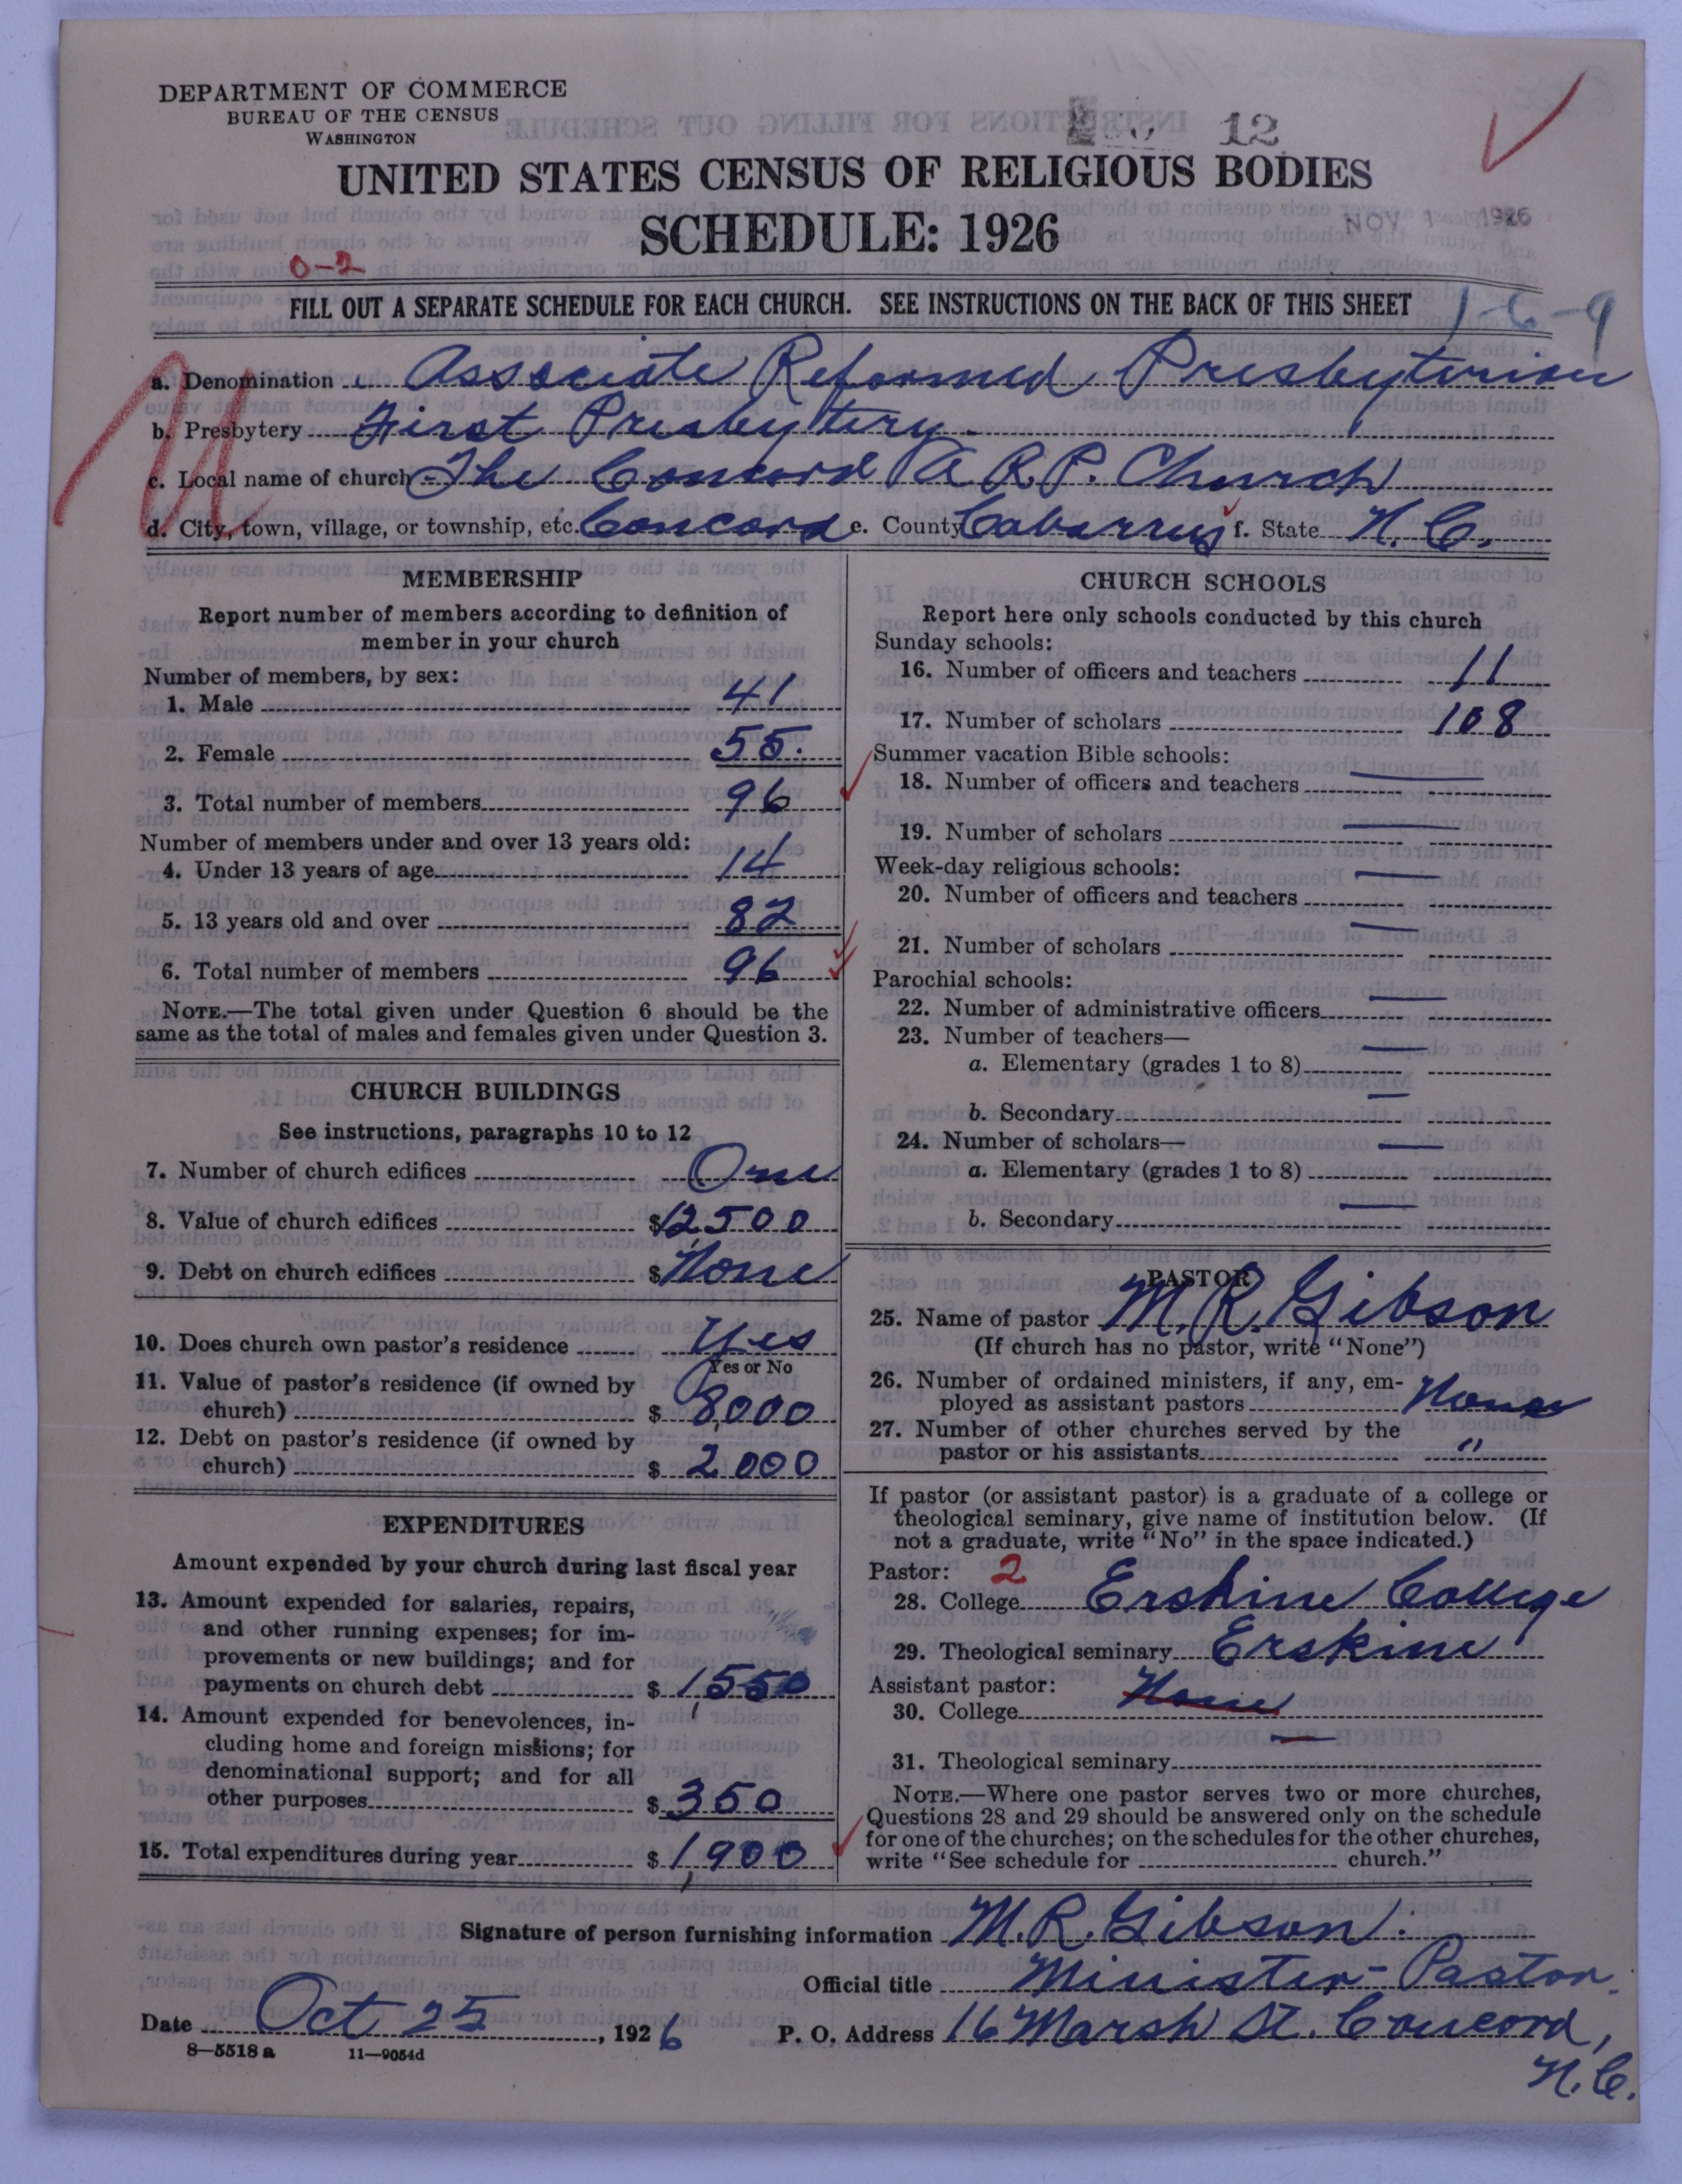 DEPARTMENT OF COMMERCE
BUREAU OF THE CENSUS
WASHINGTON
12
UNITED STATES CENSUS OF RELIGIOUS BODIES
SCHEDULE: 1926
NOV 1 1926
0-2
FILL OUT A SEPARATE SCHEDULE FOR EACH CHURCH. SEE INSTRUCTIONS ON THE BACK OF THIS SHEET
1-6-9
a. Denomination Associate Reformed Presbyterian
b. Presbytery First Presbytery.
c. Local name of church The Concord A. R. P. Church
d. City, town, village, or township, etc. Concord e. County Cabarrus f. State N. C.
MEMBERSHIP
Report number of members according to definition of
member in your church
Number of members, by sex:
1. Male 41
2. Female 55.
3. Total number of members 96
Number of members under and over 13 years old:
4. Under 13 years of age 14
5. 13 years old and over 82
6. Total number of members 96
NOTE.—The total given under Question 6 should be the
same as the total of males and females given under Question 3.
CHURCH BUILDINGS
See instructions, paragraphs 10 to 12
7. Number of church edifices One
8. Value of church edifices $12,500
9. Debt on church edifices $ None
10. Does church own pastor's residence Yes
Yes or No
11. Value of pastor's residence (if owned by
church) $ 8,000
12. Debt on pastor's residence (if owned by
church) $ 2,000
EXPENDITURES
Amount expended by your church during last fiscal year
13. Amount expended for salaries, repairs,
and other running expenses; for im-
provements or new buildings; and for
payments on church debt $ 1,550
14. Amount expended for benevolences, in-
cluding home and foreign missions; for
denominational support; and for all
other purposes $ 350
15. Total expenditures during year $ 1,900
CHURCH SCHOOLS
Report here only schools conducted by this church
Sunday schools:
16. Number of officers and teachers 11
17. Number of scholars 108
Summer vacation Bible schools:
18. Number of officers and teachers —
19. Number of scholars —
Week-day religious schools:
20. Number of officers and teachers —
21. Number of scholars —
Parochial schools:
22. Number of administrative officers —
23. Number of teachers—
a. Elementary (grades 1 to 8) —
b. Secondary —
24. Number of scholars—
a. Elementary (grades 1 to 8) —
b. Secondary —
PASTOR
25. Name of pastor M. R. Gibson
(If church has no pastor, write "None")
26. Number of ordained ministers, if any, em-
ployed as assistant pastors None
27. Number of other churches served by the
pastor or his assistants "
If pastor (or assistant pastor) is a graduate of a college or
theological seminary, give name of institution below. (If
not a graduate, write "No" in the space indicated.)
Pastor: 2
28. College Erskine College
29. Theological seminary Erskine
Assistant pastor:
30. College None
31. Theological seminary —
NOTE.—Where one pastor serves two or more churches,
Questions 28 and 29 should be answered only on the schedule
for one of the churches; on the schedules for the other churches,
write "See schedule for church."
Signature of person furnishing information M. R. Gibson.
Official title Minister-Pastor.
Date Oct 25, 1926 P. O. Address 16 Marsh St. Concord,
N. C.
8—5518 a 11—9054d